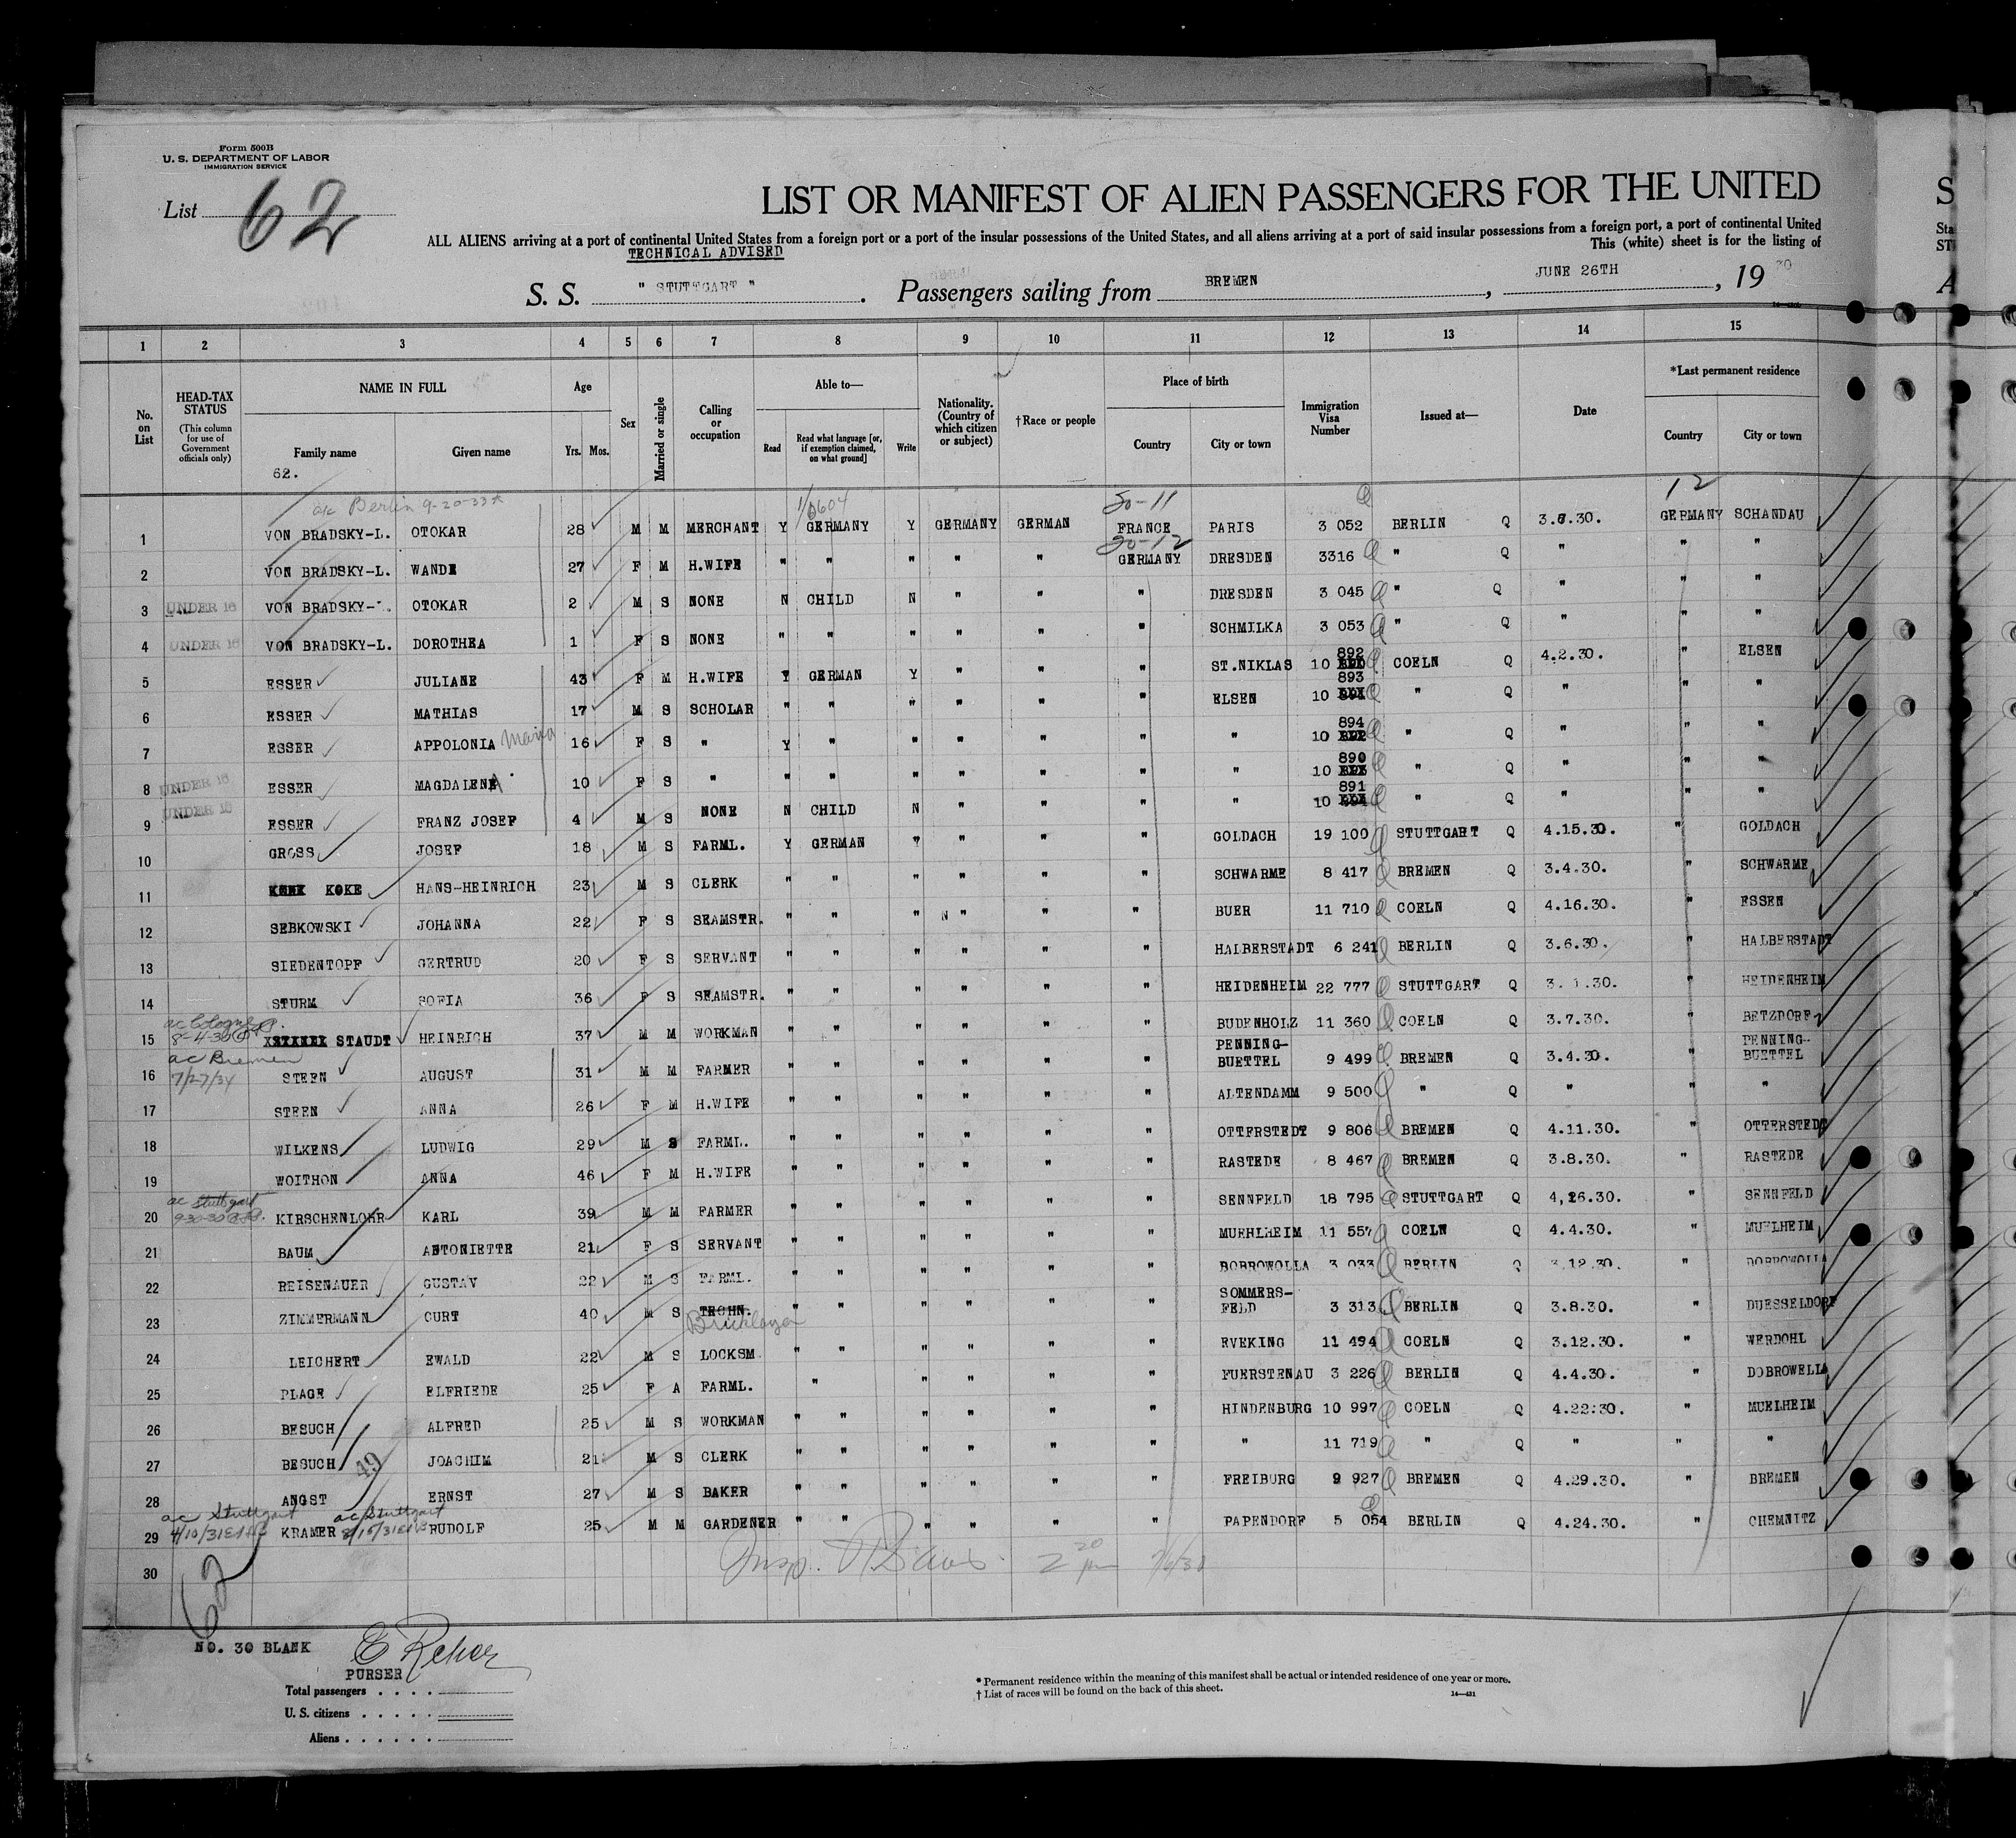 Form 500B
U. S. DEPARTMENT OF LABOR
IMMIGRATION SERVICE
List 62
LIST OR MANIFEST OF ALIEN PASSENGERS FOR THE UNITED
ALL ALIENS arriving at a port of continental United States from a foreign port or a port of the insular possessions of the United States, and all aliens arriving at a port of said insular possessions from a foreign port, a port of continental United
TECHNICAL ADVISED This (white) sheet is for the listing of
S. S. " STUTTGART " . Passengers sailing from BREMEN , JUNE 26TH , 19 30
1 2 3 4 5 6 7 8 9 10 11 12 13 14 15
No. on List
HEAD-TAX STATUS (This column for use of Government officials only)
NAME IN FULL Family name Given name
Age Yrs. Mos.
Sex
Married or single
Calling or occupation
Able to— Read Read what language [or, if exemption claimed, on what ground] Write
Nationality. (Country of which citizen or subject)
†Race or people
Place of birth Country City or town
Immigration Visa Number
Issued at—
Date
*Last permanent residence Country City or town
62.
Berlin 9-20-33 20-11 12
1 VON BRADSKY-L. OTOKAR 28 M M MERCHANT Y GERMANY Y GERMANY GERMAN FRANCE PARIS 3 052 BERLIN Q GERMANY SCHANDAU
20-12
2 VON BRADSKY-L. WANDE 27 F M H.WIFE " " " " " GERMANY DRESDEN 3316 " Q " " "
3 UNDER 16 VON BRADSKY- OTOKAR 2 M S NONE N CHILD N " " " DRESDEN 3 045 " Q " " "
4 UNDER 16 VON BRADSKY-L. DOROTHEA 1 F S NONE " " " " " " SCHMILKA 3 053 " Q " " "
5 ESSER JULIANE 43 F M H.WIFE Y GERMAN Y " " " ST.NIKLAS 10 892 COELN Q 4.2.30. " ELSEN
6 ESSER MATHIAS 17 M S SCHOLAR " " " " " " ELSEN 10 893 " Q " " "
7 ESSER APPOLONIA Maria 16 F S " Y " " " " " " 10 894 " Q " " "
8 UNDER 16 ESSER MAGDALENA 10 F S " " " " " " " " 10 890 " Q " " "
9 UNDER 16 ESSER FRANZ JOSEF 4 M S NONE N CHILD N " " " " 10 891 " Q " " "
10 GROSS JOSEF 18 M S FARML. Y GERMAN " " " " GOLDACH 19 100 STUTTGART Q 4.15.30. " GOLDACH
11 KOKE HANS-HEINRICH 23 M S CLERK " " " " " " SCHWARME 8 417 BREMEN Q 3.4.30. " SCHWARME
12 SEBKOWSKI JOHANNA 22 F S SEAMSTR. " " " N " " " BUER 11 710 COELN Q 4.16.30. " ESSEN
13 SIEDENTOPF GERTRUD 20 F S SERVANT " " " " " " HALBERSTADT 6 241 BERLIN Q 3.6.30. " HALBERSTADT
14 STURM SOFIA 36 F S SEAMSTR. " " " " " " HEIDENHEIM 22 777 STUTTGART Q " HEIDENHEIM
ac Cologne
15 8-4-30 STAUDT HEINRICH 37 M M WORKMAN " " " " " " BUDENHOLZ 11 360 COELN Q 3.7.30. " BETZDORF
ac Bremen
16 7/27/34 STEEN AUGUST 31 M M FARMER " " " " " " PENNING-BUETTEL 9 499 BREMEN Q 3.4.30. " PENNING-BUETTEL
17 STEEN ANNA 26 F M H.WIFE " " " " " " ALTENDAMM 9 500 " Q " " "
18 WILKENS LUDWIG 29 M S FARML. " " " " " " OTTERSTEDT 9 806 BREMEN Q 4.11.30. " OTTERSTEDT
19 WOITHON ANNA 46 F M H.WIFE " " " " " " RASTEDE 8 467 BREMEN Q 3.8.30. " RASTEDE
ac Stuttgart
20 9-30-30 KIRSCHENLOHR KARL 39 M M FARMER " " " " " " SENNFELD 18 795 STUTTGART Q 4.26.30. " SENNFELD
21 BAUM ANTONIETTE 21 F S SERVANT " " " " " " MUEHLHEIM 11 557 COELN Q 4.4.30. " MUELHEIM
22 REISENAUER GUSTAV 22 M S FARML. " " " " " " BOBROWOLLA 3 033 BERLIN Q 3.12.30. " DOBROWOLLA
23 ZIMMERMANN CURT 40 M S TECHN. Bricklayer " " " " " " SOMMERS-FELD 3 313 BERLIN Q 3.8.30. " DUESSELDORF
24 LEICHERT EWALD 22 M S LOCKSM. " " " " " " EVEKING 11 494 COELN Q 3.12.30. " WERDOHL
25 PLAGE ELFRIEDE 25 F A FARML. " " " " " FUERSTENAU 3 226 BERLIN Q 4.4.30. " DOBROWELLA
26 BESUCH ALFRED 25 M S WORKMAN " " " " " " HINDENBURG 10 997 COELN Q 4.22.30. " MUELHEIM
27 BESUCH 49 JOACHIM 21 M S CLERK " " " " " " " 11 719 " Q " " "
28 ANGST ERNST 27 M S BAKER " " " " " " FREIBURG 9 927 BREMEN Q 4.29.30. " BREMEN
ac Stuttgart ac Stuttgart
29 4/10/31 KRAMER 8/15/31 RUDOLF 25 M M GARDENER " " " " " " PAPENDORF 5 054 BERLIN Q 4.24.30. " CHEMNITZ
30 Insp. 2 20 pm 7/6/30
62
NO. 30 BLANK
PURSER
Total passengers . . . .
U. S. citizens . . . . .
Aliens . . . . . .
* Permanent residence within the meaning of this manifest shall be actual or intended residence of one year or more.
† List of races will be found on the back of this sheet.
14—431